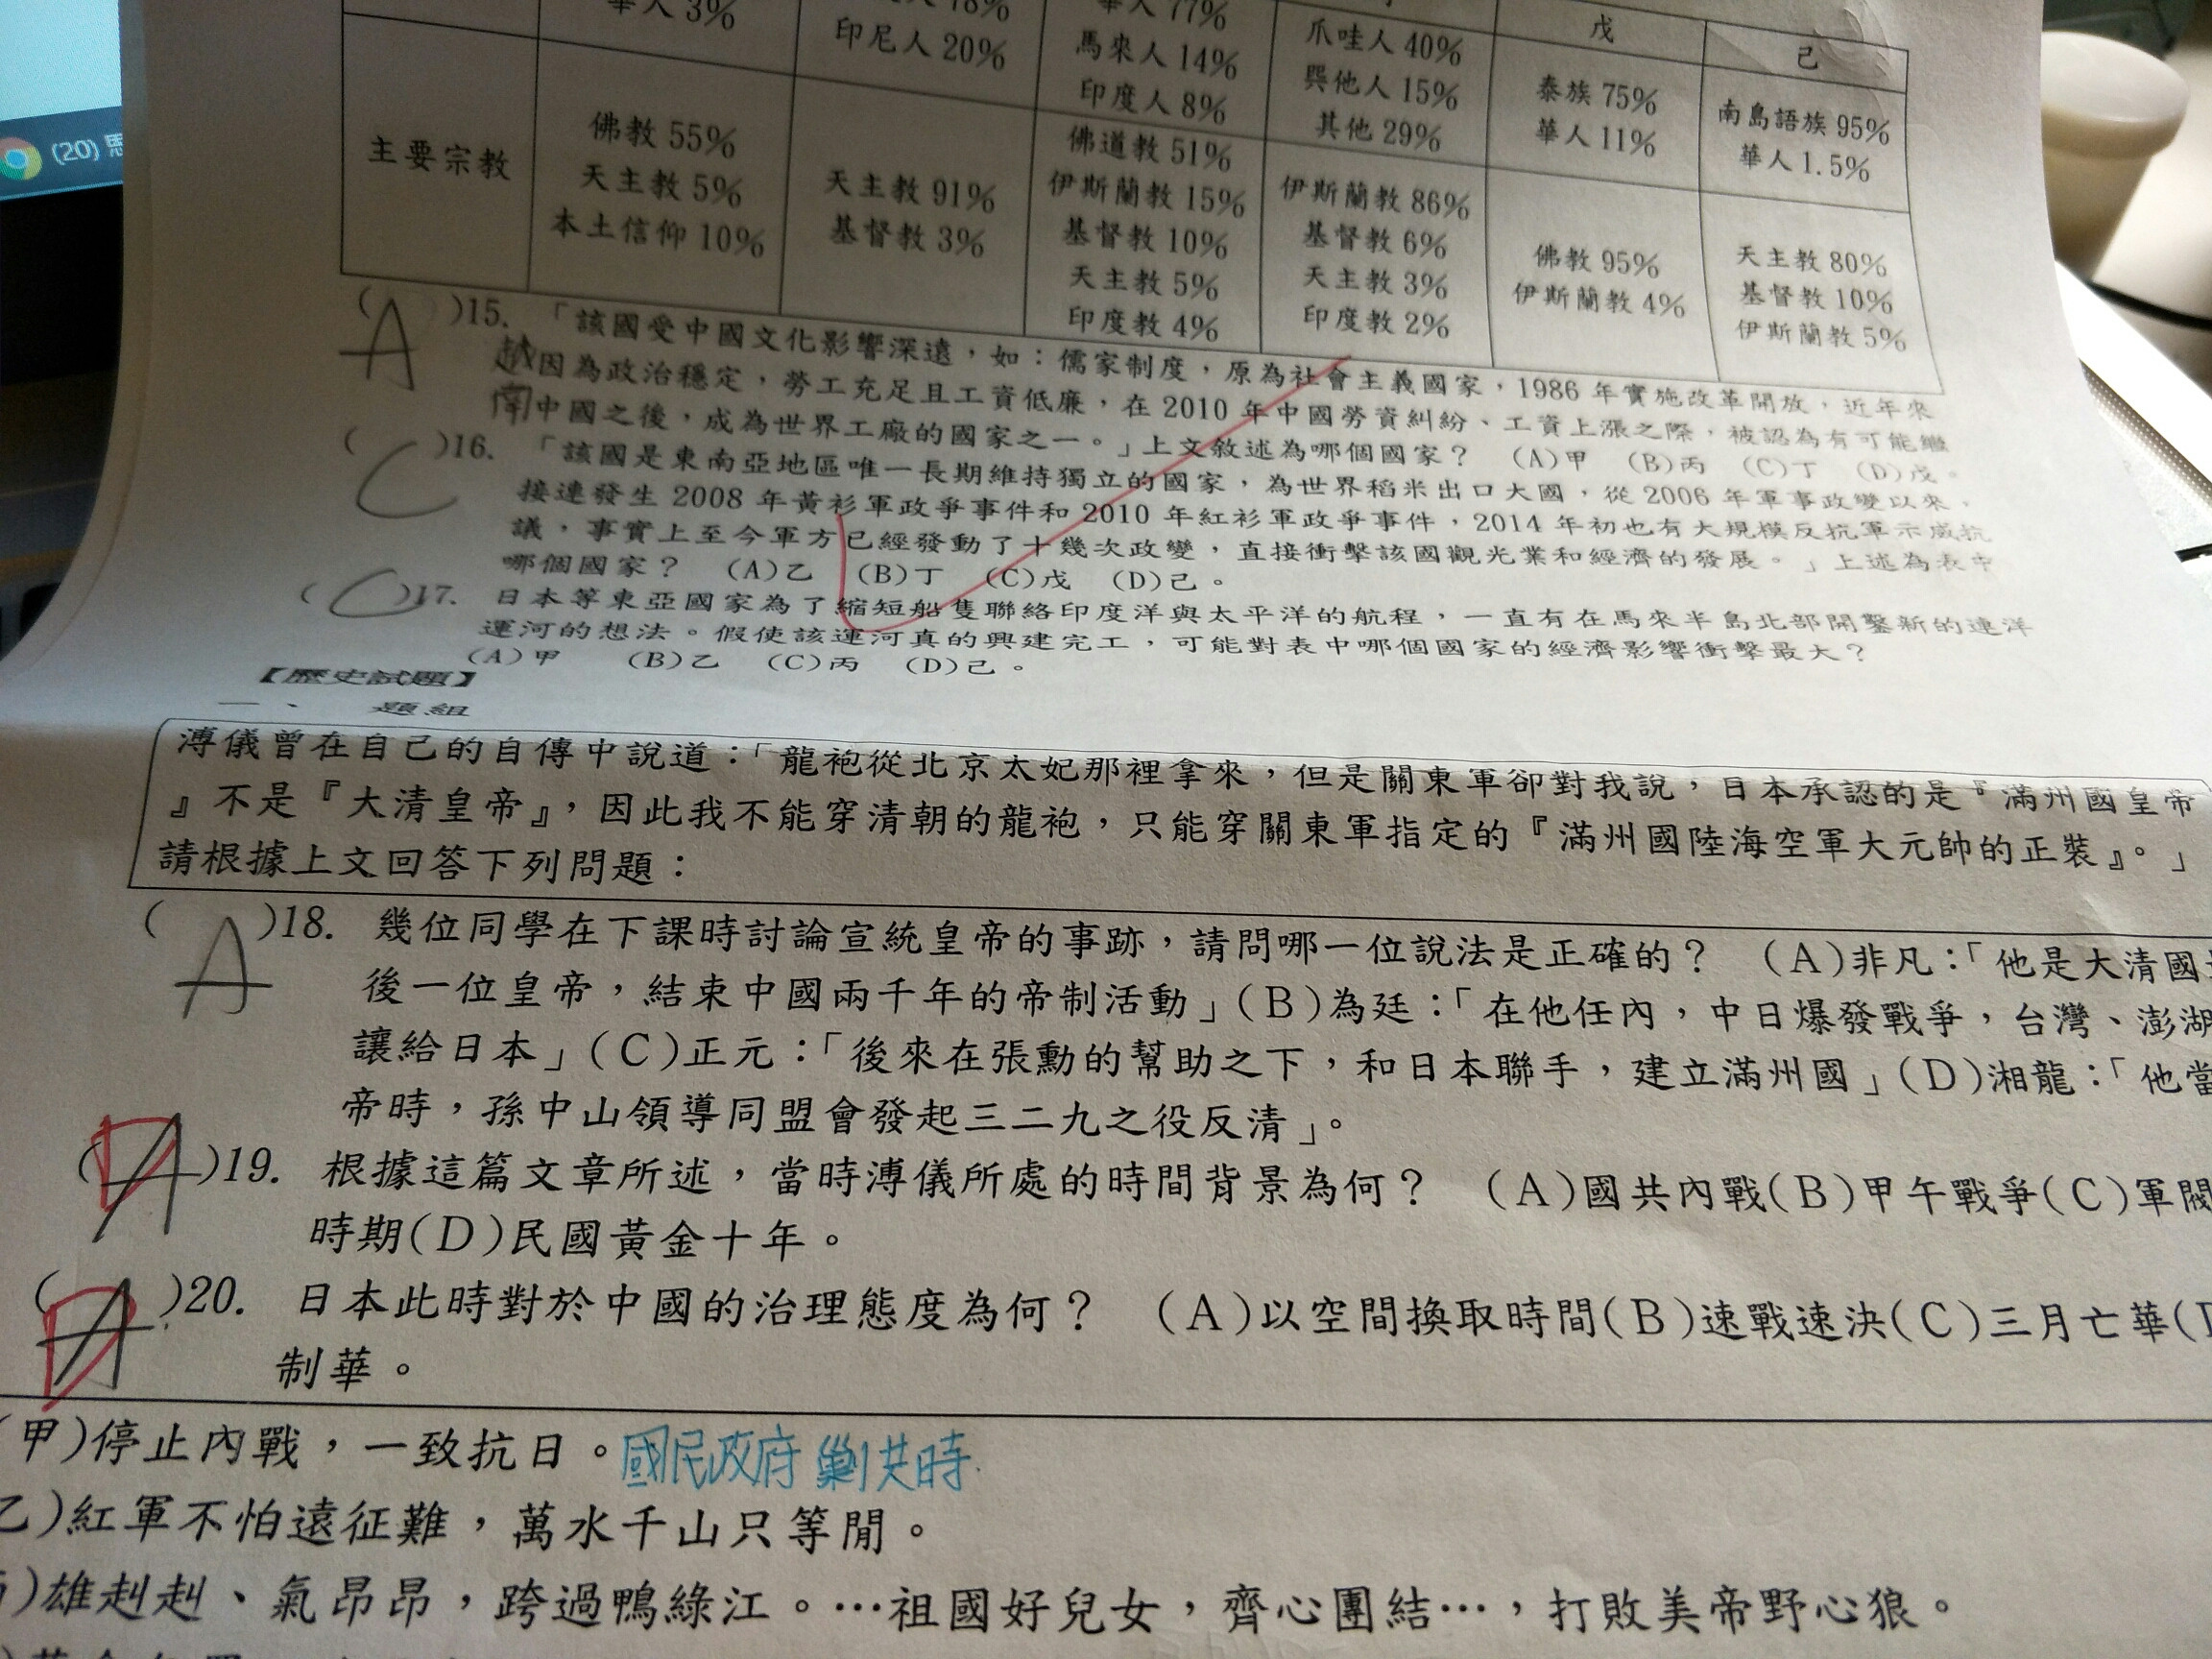 (20) 思
華人 3%
78%
印尼人 20%
華人 77%
馬來人 14%
印度人 8%
爪哇人 40%
巽他人 15%
其他 29%
戊
泰族 75%
華人 11%
己
南島語族 95%
華人 1.5%
主要宗教
佛教 55%
天主教 5%
本土信仰 10%
天主教 91%
基督教 3%
佛道教 51%
伊斯蘭教 15%
基督教 10%
天主教 5%
印度教 4%
伊斯蘭教 86%
基督教 6%
天主教 3%
印度教 2%
佛教 95%
伊斯蘭教 4%
天主教 80%
基督教 10%
伊斯蘭教 5%
( A )15. 「該國受中國文化影響深遠，如：儒家制度，原為社會主義國家，1986 年實施改革開放，近年來
越 因為政治穩定，勞工充足且工資低廉，在 2010 年中國勞資糾紛、工資上漲之際，被認為有可能繼
南 中國之後，成為世界工廠的國家之一。」上文敘述為哪個國家？ (A)甲 (B)丙 (C)丁 (D)戊。
( C )16. 「該國是東南亞地區唯一長期維持獨立的國家，為世界稻米出口大國，從 2006 年軍事政變以來，
接連發生 2008 年黃衫軍政爭事件和 2010 年紅衫軍政爭事件，2014 年初也有大規模反抗軍示威抗
議，事實上至今軍方已經發動了十幾次政變，直接衝擊該國觀光業和經濟的發展。」上述為表中
哪個國家？ (A)乙 (B)丁 (C)戊 (D)己。
( C )17. 日本等東亞國家為了縮短船隻聯絡印度洋與太平洋的航程，一直有在馬來半島北部開鑿新的連洋
運河的想法。假使該運河真的興建完工，可能對表中哪個國家的經濟影響衝擊最大？
(A)甲 (B)乙 (C)丙 (D)己。
【歷史試題】
一、 題組
溥儀曾在自己的自傳中說道：「龍袍從北京太妃那裡拿來，但是關東軍卻對我說，日本承認的是『滿州國皇帝
』不是『大清皇帝』，因此我不能穿清朝的龍袍，只能穿關東軍指定的『滿州國陸海空軍大元帥的正裝』。」
請根據上文回答下列問題：
( A )18. 幾位同學在下課時討論宣統皇帝的事跡，請問哪一位說法是正確的？ (A)非凡：「他是大清國
後一位皇帝，結束中國兩千年的帝制活動」(B)為廷：「在他任內，中日爆發戰爭，台灣、澎湖
讓給日本」(C)正元：「後來在張勳的幫助之下，和日本聯手，建立滿州國」(D)湘龍：「他當
帝時，孫中山領導同盟會發起三二九之役反清」。
( A D )19. 根據這篇文章所述，當時溥儀所處的時間背景為何？ (A)國共內戰(B)甲午戰爭(C)軍閥
時期(D)民國黃金十年。
( A D )20. 日本此時對於中國的治理態度為何？ (A)以空間換取時間(B)速戰速決(C)三月亡華(D
制華。
(甲)停止內戰，一致抗日。國民政府剿共時
乙)紅軍不怕遠征難，萬水千山只等閒。
)雄赳赳、氣昂昂，跨過鴨綠江。…祖國好兒女，齊心團結…，打敗美帝野心狼。